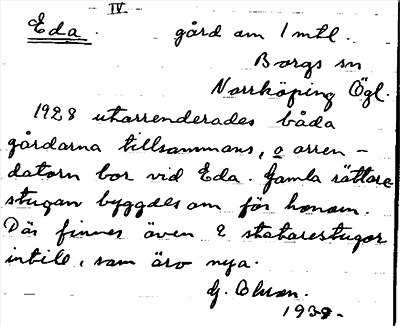 IV
Eda. gård om 1 mtl.
Borgs sn
Norrköping Ögl.
1928 utarrenderades båda
gårdarna tillsammans, o arren-
datorn bor vid Eda. Gamla rättare
stugan byggdes om för honom.
Där finnes även 2 statarestugor
intill, som äro nya.
G.